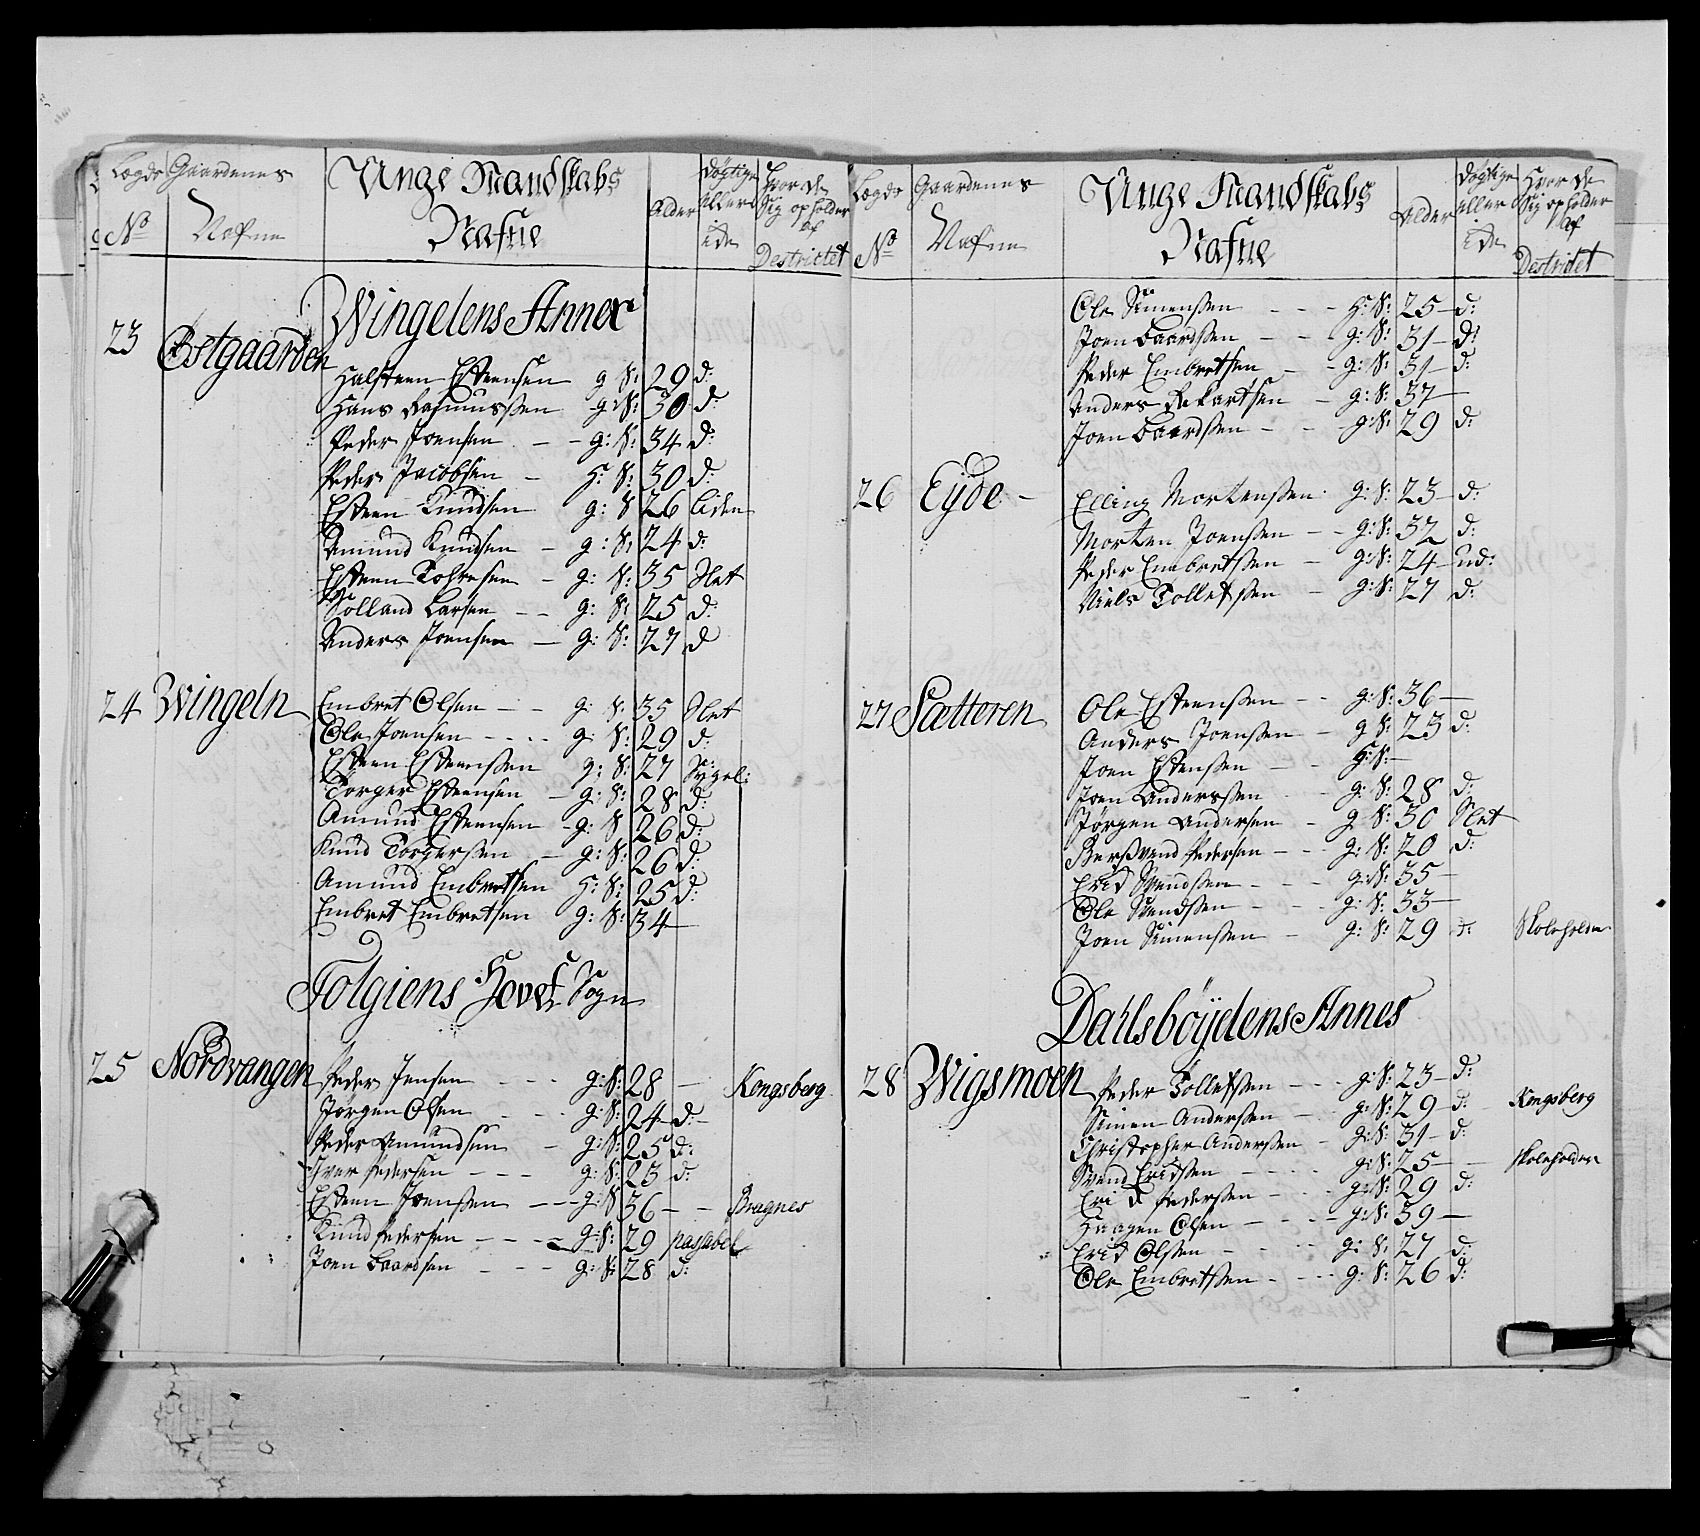 Legds No
Gaardenes Nafne
Unge Mandskabs Nafne
Alder
døgtige eller ei
Hvor de Sig opholder af Destrictet
Wingelens Annex
23 Østgaarden
Halsteen Esteensen g: S: 29 d:
Hans Rasmussen g: S: 30 d:
Peder Joensen - - g: S: 34 d:
Peder Jacobsen - H: S: 30 d:
Esteen Knudsen g: S 26 liden
Amund Knudsen - g: S: 24 d:
Esteen Tohresen - g: S: 35 Slet
Tolland Larsen - - g: S: 25 d:
Anders Joensen - g: S: 27 d
24 Wingeln
Embret Olsen - - g: S: 35 Slet
Ole Joensen - - - - g: S: 29 d:
Esteen Esteenssen g: S: 27 Sygel:
Torger Esteensen - g: S: 28 d:
Amund Esteensen - g: S 26 d:
Knud Torgerssen - g: S: 26 d:
Amund Embretsen H: S: 25 d:
Embret Embretsen g: S: 34 -
Tolgens Hovet Sogn
25 Nordvangen
Peder Jensen - - - g: S: 28 - Kongsberg
Jørgen Olsen - - - g: S: 24 d: -
Peder Amundsen - g: S: 25 d:
Iver Pedersen - - - g: S: 23 d:
Esteen Joenssen - - - g: S 36 - - Bragnes
Knud Pedersen - - - g: S: 29 passabel
Joen Baardsen - - - g: S: 28 d:
Legds No
Gaardenes Nafne
Unge Mandskabs Nafne
Alder
døgtige eller ei
Hvor de Sig opholder af Destrictet
Ole Simenssen - - - H: S: 25 - d:
Joen Baardssen - - g: S: 31 - d:
Peder Embretsen - - g: S: 31 - d:
Anders Rekartsen - g: S: 37 -
Joen Baardssen - - g: S: 29 d:
26 Eyde -
Elling Mortenssen: g: S: 23 - d:
Morten Joenssen - - g: S: 32 d:
Peder Embretssen - g: S: 24 - ud:
Niels Tolletssen - g: S: 27 d:
27 Sætteren
Ole Esteenssen - - g: S: 36 -
Anders Joenssen - g S: 23 d:
Joen Estenssen - - g: S: -
Joen Anderssen - g: S: 28 d:
Jørgen Andersen - g S: 30 Slet
Berssvend Pedersen - - g: S: 20 d:
Erick Svendssen - - - g: S: 35 -
Ole Svendssen - - - g: S: 33 -
Joen Simenssen - g: S: 29 d: Skoleholder
Dahlsbøydens Annes
28 Wigsmoen
Peder Tolletssen - - - g: S: 23 - d:
Simen Anderssen - - g: S: 29 - d: Kongsberg
Christopher Anderssen - g: S: 31 - d:
Svend Erichssen - - - g: S: 25 - - Skoleholder
Erick Pedersen - - - g: S: 29 d:
Haagen Olsen - - - g: S: 39 -
Erick Olssen - - - g: S: 27 d:
Ole Embretssen - - - g: S: 26 d: